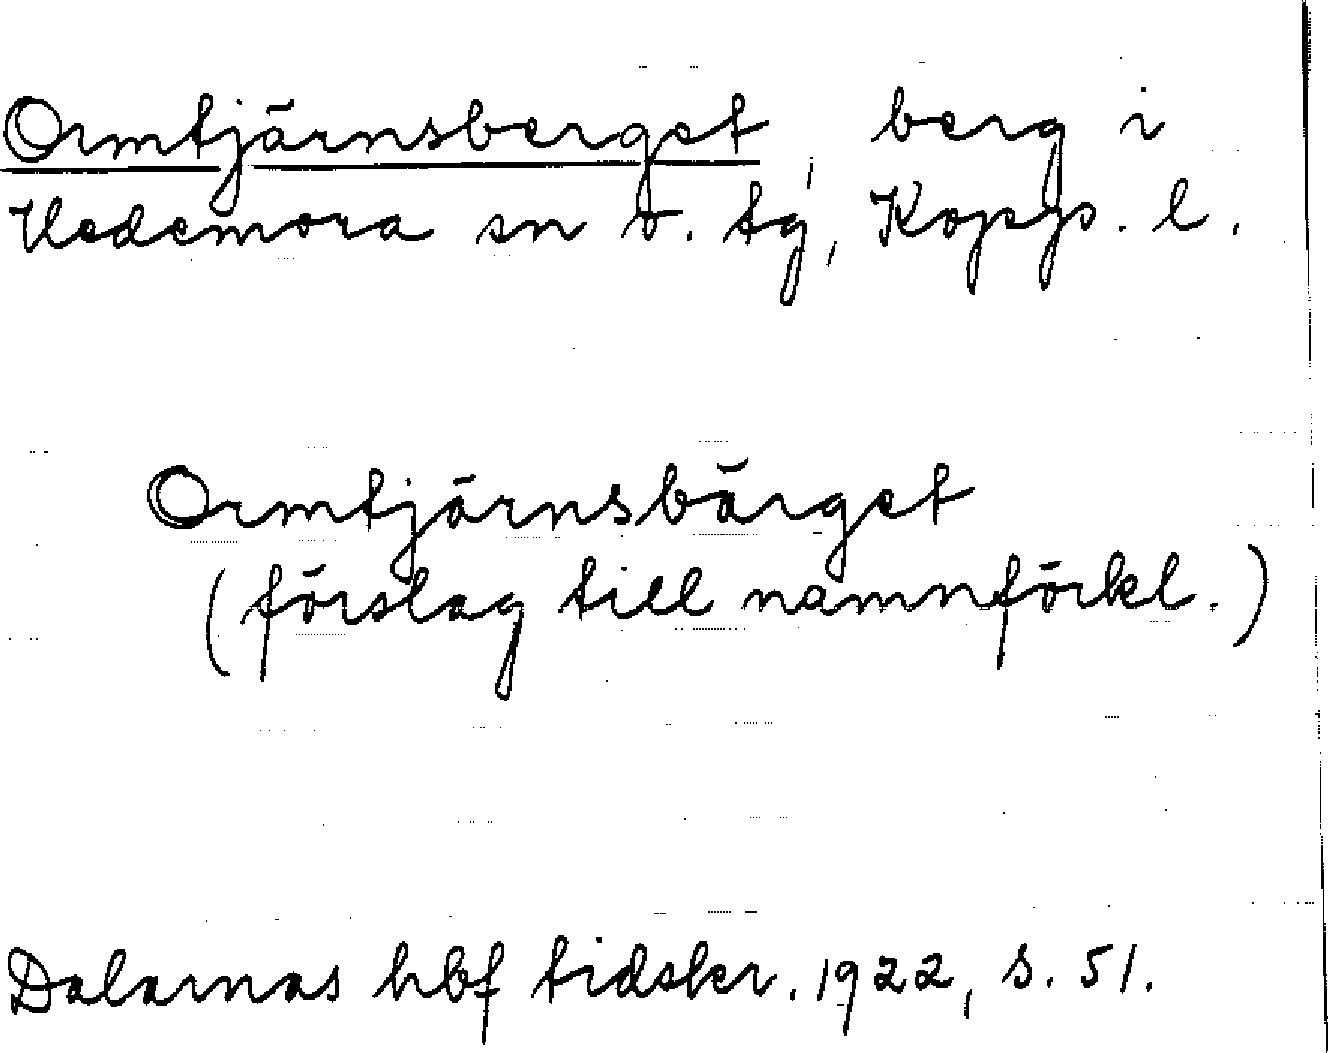 Ormtjärnsberget, berg i
Hedemora sn o. tg, Kopp. l.
Ormtjärnsbärget
(förslag till namnförkl.)
Dalarnas hbf tidskr. 1922, s. 51.